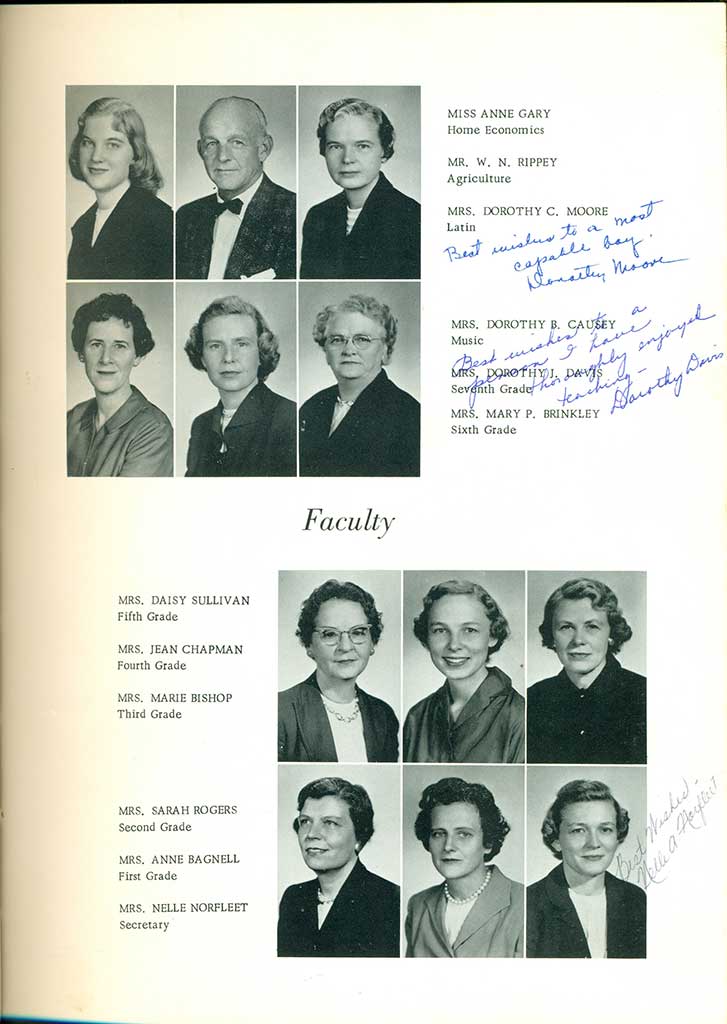 MISS ANNE GARY
Home Economics
MR. W. N. RIPPEY
Agriculture
MRS. DOROTHY C. MOORE
Latin
Best wishes to a most
capable boy.
Dorothy Moore
MRS. DOROTHY B. CAUSEY
Music
Best wishes to a
person I have
thoroughly enjoyed
teaching-
Dorothy Davis
MRS. DOROTHY J. DAVIS
Seventh Grade
MRS. MARY P. BRINKLEY
Sixth Grade
Faculty
MRS. DAISY SULLIVAN
Fifth Grade
MRS. JEAN CHAPMAN
Fourth Grade
MRS. MARIE BISHOP
Third Grade
MRS. SARAH ROGERS
Second Grade
MRS. ANNE BAGNELL
First Grade
MRS. NELLE NORFLEET
Secretary
Best Wishes -
Nelle A Norfleet